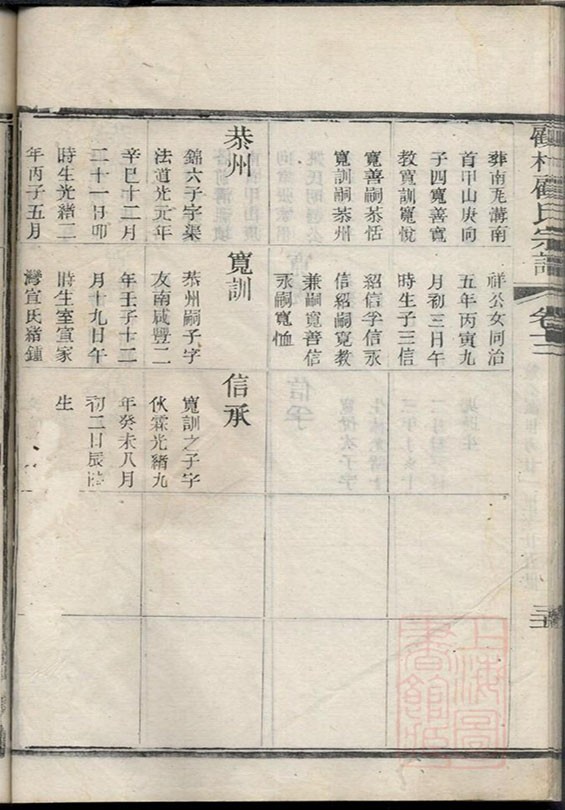 顧村顧氏宗譜
卷十三
葬南芜溝南
首甲山庚向
子四寬善寬
教寬訓寬悅
寬善嗣恭恬
寬訓嗣恭州
祥公女同治
五年丙寅九
月初三日午
時生子三信
紹信孚信永
信紹嗣寬教
兼嗣寬善信
永嗣寬恤
恭州
錦六子字集
法道光元年
辛巳十二月
二十一日卯
時生光緒二
年丙子五月
寬訓
恭州嗣子字
友南咸豐二
年壬子十二
月十九日午
時生室宣家
灣宣氏緒鍾
信承
寬訓之子字
伙霖光緒九
年癸未八月
初二日辰時
生
上海圖
書館藏